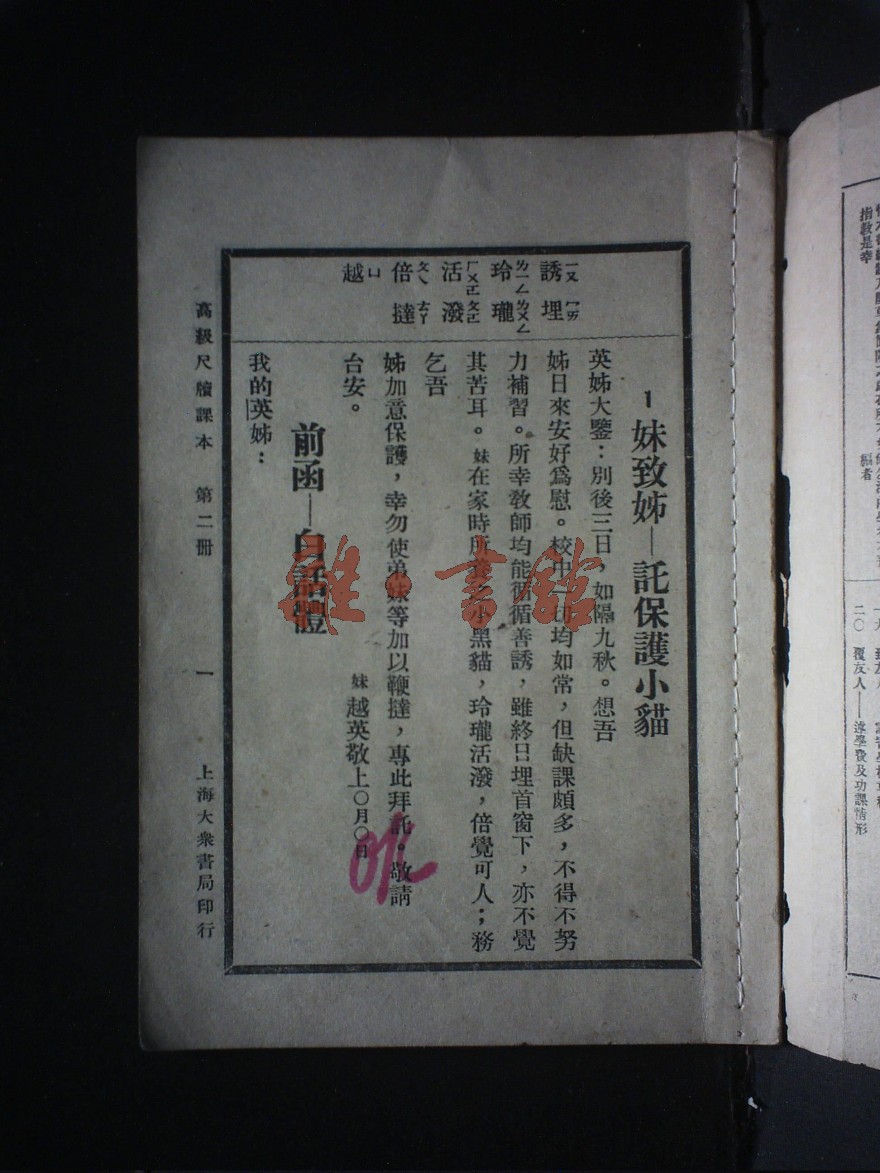 誘 埋
ㄧㄡ ㄇㄞ
玲 瓏
ㄌㄧㄥ ㄌㄨㄥ
活 潑
倍 撻
ㄊㄚ
越
ㄩ
1 妹致姊—託保護小貓
英姊大鑒：別後三日，如隔九秋。想吾
姊日來安好爲慰。校中一切均如常，但缺課頗多，不得不努
力補習。所幸教師均能循循善誘，雖終日埋首窗下，亦不覺
其苦耳。妹在家時所養之小黑貓，玲瓏活潑，倍覺可人；務
乞吾
姊加意保護，幸勿使弟妹等加以鞭撻，專此拜託。敬請
台安。
妹 越英敬上〇月〇日
前函—白話體
我的英姊：
高級尺牘課本 第二冊 一 上海大衆書局印行
雜·書館
指教是幸
編者
二〇 覆友人——述學費及功課情形